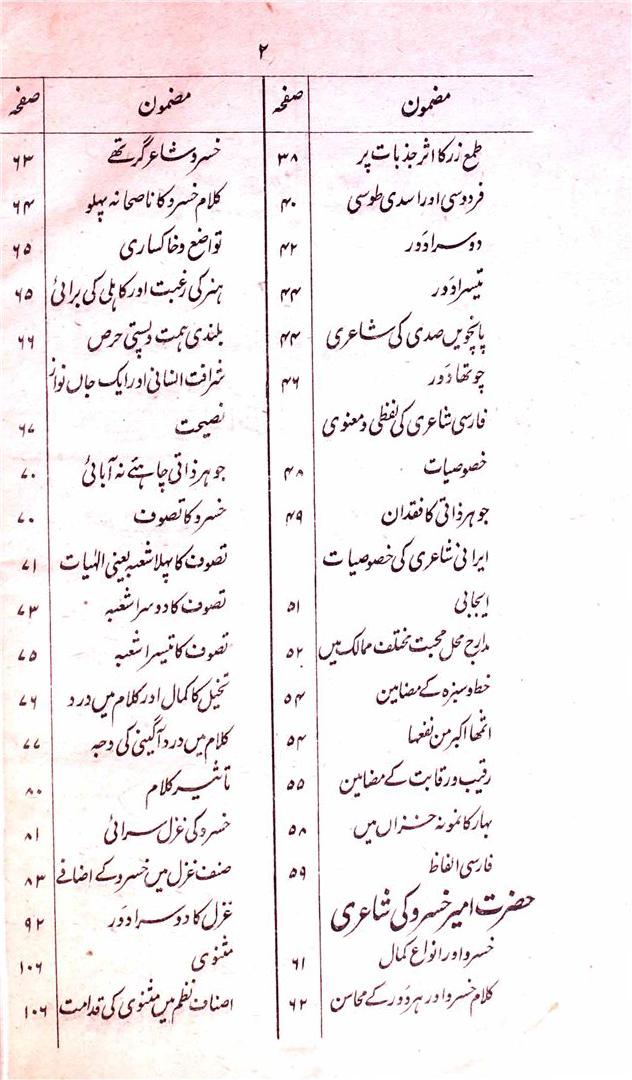 ۲
مضمون صفحہ
طمع زر کا اثر جذبات پر ۳۸
فردوسی اور اسدی طوسی ۴۰
دوسرا دَور ۴۲
تیسرا دَور ۴۴
پانچویں صدی کی شاعری ۴۴
چوتھا دَور ۴۶
فارسی شاعری کی لفظی و معنوی
خصوصیات ۴۸
جوہر ذاتی کا فقدان ۴۹
ایرانی شاعری کی خصوصیات
ایجابی ۵۱
مدارج محل محبت مختلف ممالک میں ۵۲
خط و سبزہ کے مضامین ۵۴
اثمھا اکبر من نفعھا ۵۴
رقیب و رقابت کے مضامین ۵۵
بہار کا نمونہ خزاں میں ۵۸
فارسی الفاظ ۵۹
حضرت امیر خسرو کی شاعری
خسرو اور انواع کمال ۶۱
کلام خسرو اور ہر دَور کے محاسن ۶۲
مضمون صفحہ
خسرو شاعر گر تھے ۶۳
کلام خسرو کا ناصحانہ پہلو ۶۴
تواضع و خاکساری ۶۵
ہنر کی رغبت اور کاہلی کی برائی ۶۵
بلندی ہمت و پستی حرص ۶۶
شرافت انسانی اور ایک جاں نواز
نصیحت ۶۷
جوہر ذاتی چاہئے نہ آبائی ۷۰
خسرو کا تصوف ۷۰
تصوف کا پہلا شعبہ یعنی الٰہیات ۷۱
تصوف کا دوسرا شعبہ ۷۳
تصوف کا تیسرا شعبہ ۷۵
تخیل کا کمال اور کلام میں درد ۷۶
کلام میں درد آگینی کی وجہ ۷۷
تاثیر کلام ۸۰
خسرو کی غزل سرائی ۸۱
صنف غزل میں خسرو کے اضافے ۸۳
غزل کا دوسرا دَور ۹۲
مثنوی ۱۰۶
اصناف نظم میں مثنوی کی قدامت ۱۰۶